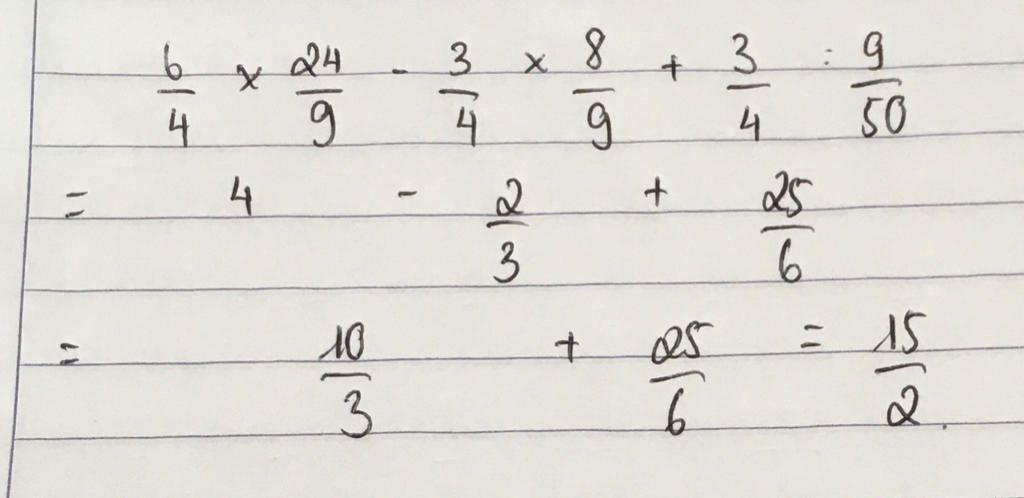 6/4 × 24/9 - 3/4 × 8/9 + 3/4 : 9/50
= 4 - 2/3 + 25/6
= 10/3 + 25/6 = 15/2.